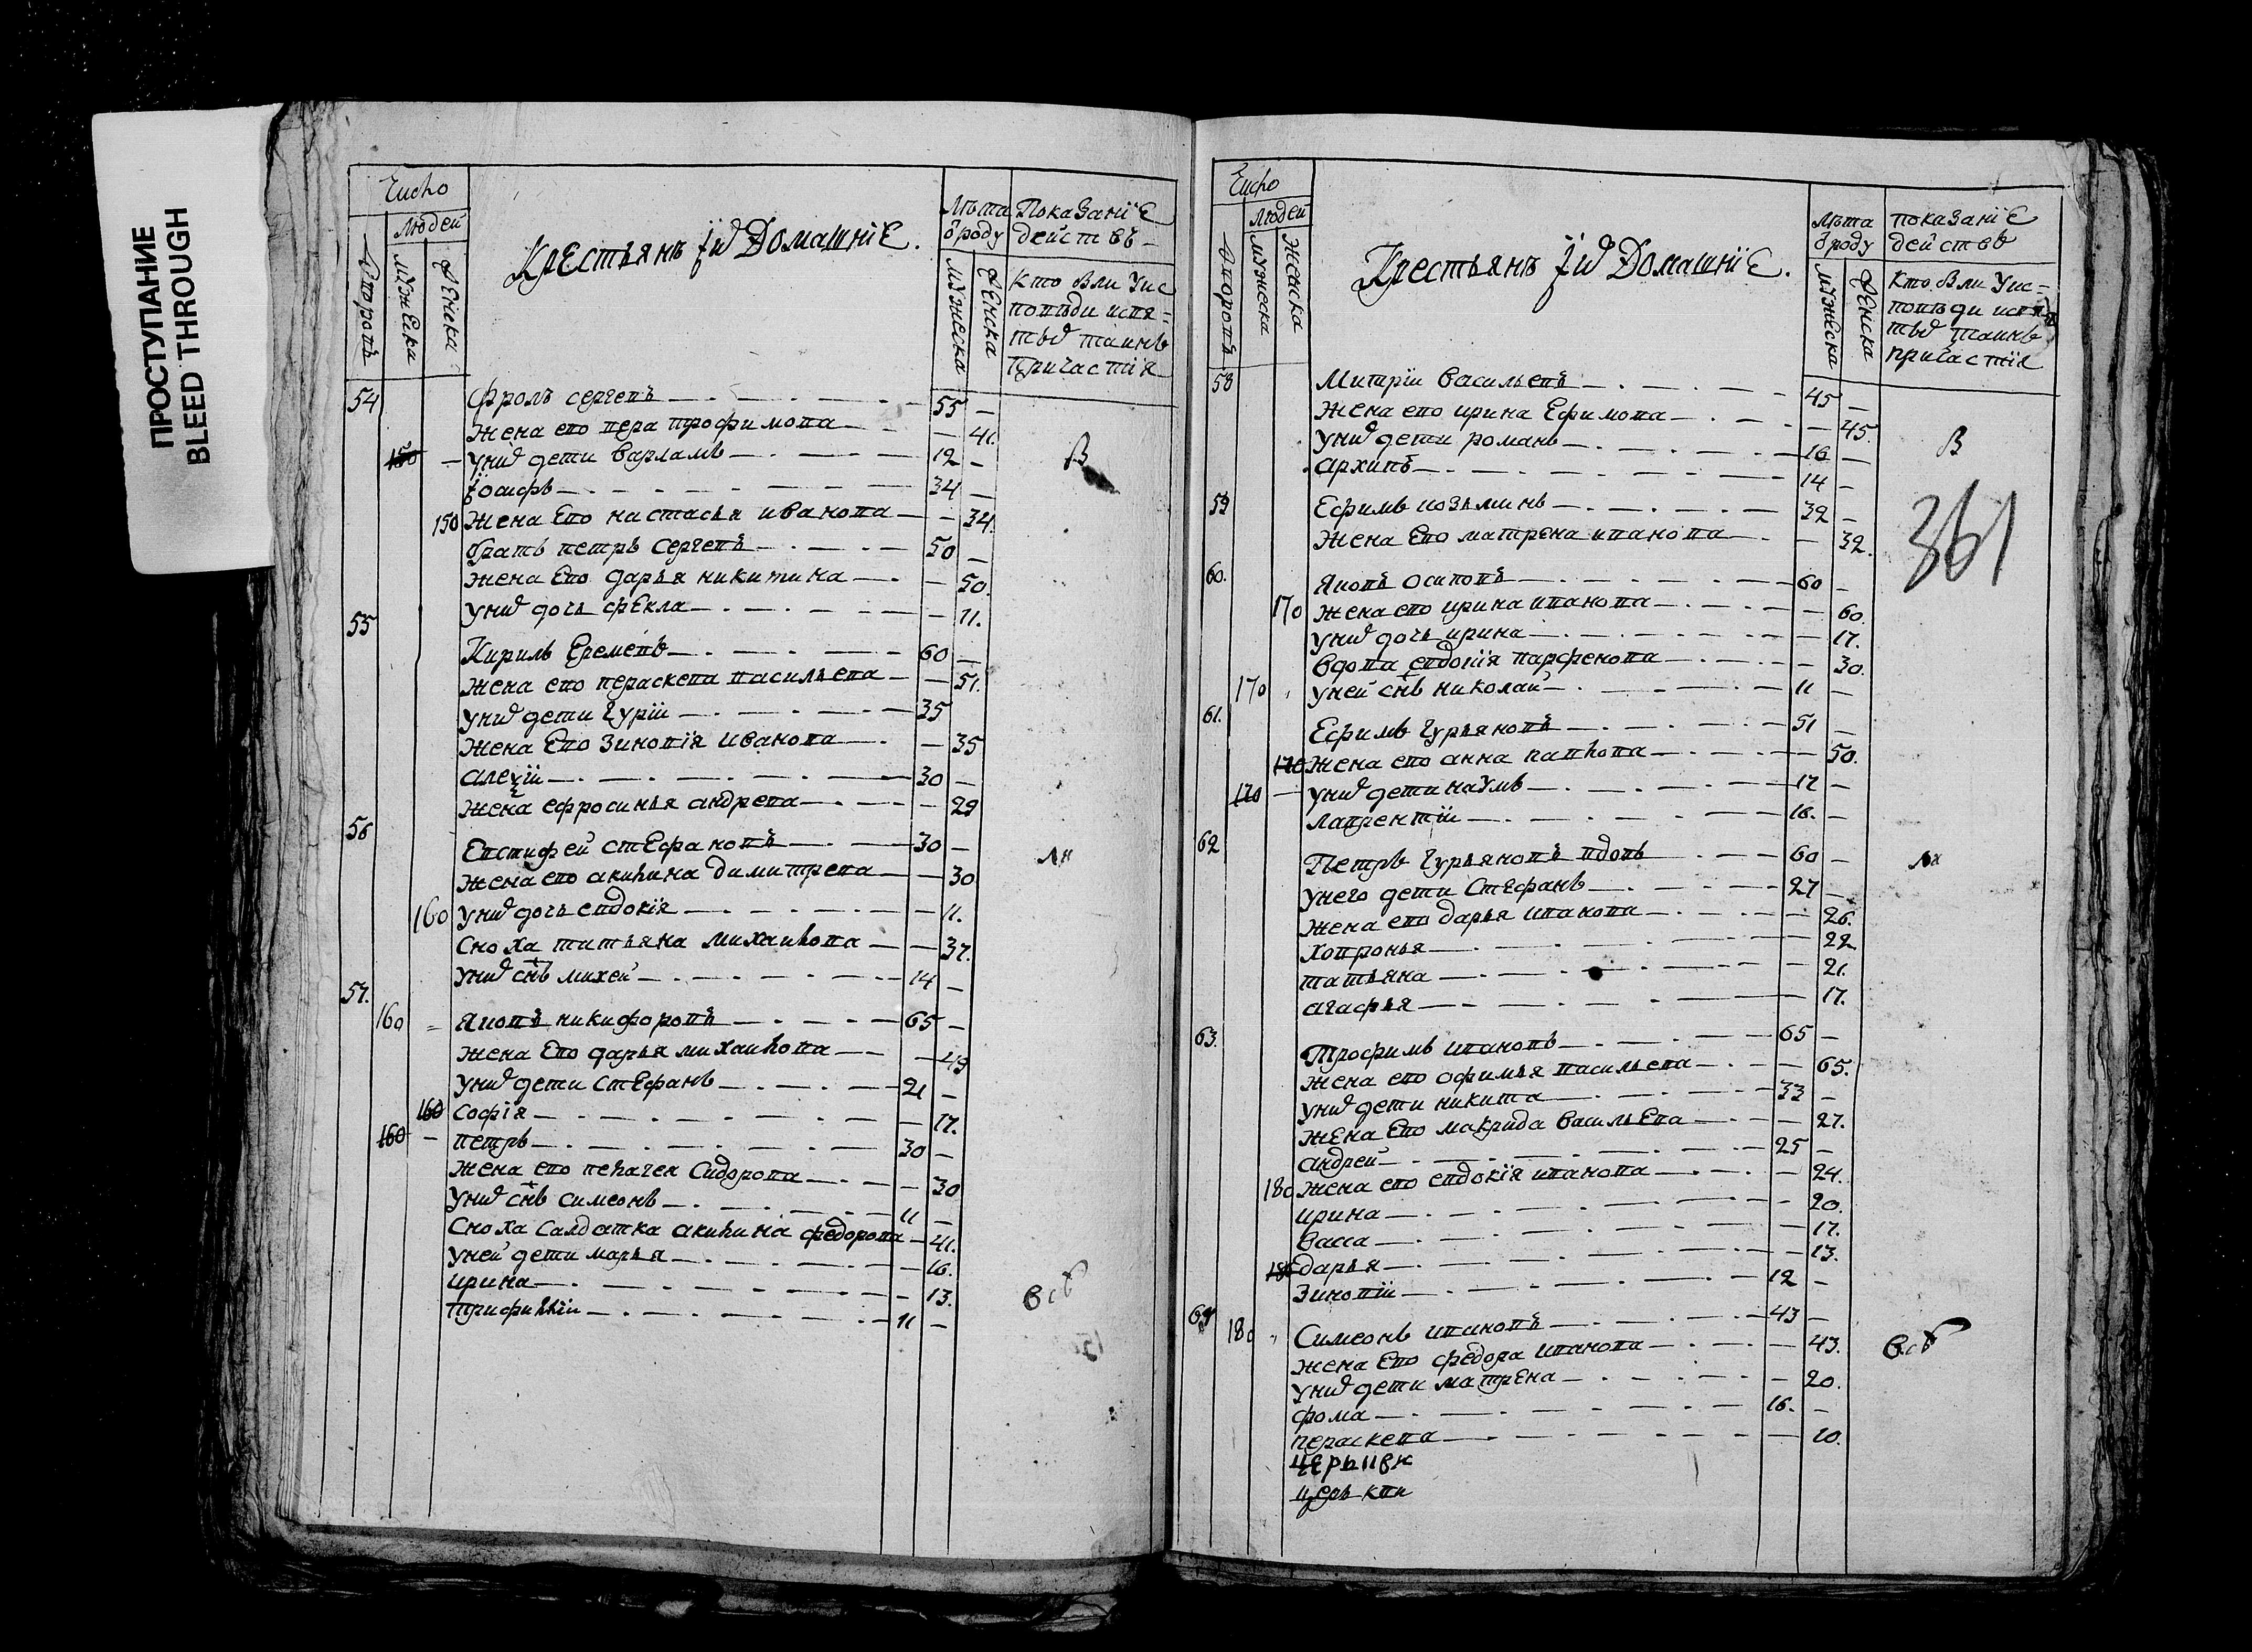 ПРОСТУПАНИЕ
BLEED THROUGH
Число
людей
дворовъ
мужеска
женска
Крестьянъ їихъ Домашнїе.
Лѣта
ѿроду
мужеска
женска
Показанїе
действъ
кто былъ уис
поведи исвя=
тыхъ таинъ
причастїя
54 Фролъ сергевъ 55
Жена ево вера трофимова 41.
150 унихъ дети варламъ 12
їосифъ 34
150 Жена Ево настасья иванова 34
братъ петръ сергевъ 50
Жена Ево дарья никитина 50.
унихъ дочь фекла 11.
В
55 Кирилъ Еремевъ 60
Жена ево пераскева васильева 51.
унихъ дети гурїи 35
Жена Ево Зиновїя иванова 35
алеѯїи 30
Жена ефросинья андрева 29
56 Евстифей стефановъ 30
Жена ево акилина димитрева 30
160 унихъ дочь евдокїя 11.
Сноха титьяна михаилова 37.
унихъ снъ михей 14
лн
57. 160 Яковъ никифоровъ 65
Жена Ево дарья михаилова 49
унихъ дети стефанъ 21
160 Софїя 17.
160 петръ 30
Жена ево пелагея Сидорова 30
унихъ снъ симеонъ 11
Сноха Салдатка акилина федорова 41.
уней дети марья 16.
ирина 13.
трифиллїи 11
всѣ
Число
людей
дворовъ
мужеска
женска
Крестьянъ їихъ Домашнїе.
Лѣта
ѿроду
мужеска
женска
показанїе
действъ
кто былъ уис=
поведи исвя
тыхъ таинъ
причастїя
58 Митрїи васильевъ 45
Жена ево ирина Ефимова 45.
унихъ дети романъ 16
архипъ 14
В
59 Ефимъ козьминъ 32
Жена Ево матрена иванова 32.
361
60. Яковъ осиповъ 60
170 Жена ево ирина иванова 60.
унихъ дочь ирина 17.
вдова евдокїя парфенова 30.
170 уней снъ николай 11
61. Ефимъ гурьяновъ 51
170 Жена ево анна павлова 50.
170 унихъ дети наумъ 17
лаврентїи 16.
62 Петръ гурьяновъ вдовъ 60
унего дети Стефанъ 27
Жена ево дарья иванова 26.
ховронья 22
татьяна 21.
агафья 17.
лн
63. Трофимъ ивановъ 65
Жена ево офимья васильева 65.
унихъ дети никита 33
Жена Ево макрида васильева 27.
андрей 25
180 Жена ево евдокїя иванова 24.
ирина 20.
васса 17.
180 дарья 13.
Зиновїи 12
64 180 Симеонъ ивановъ 43
Жена Ево федора иванова 43.
унихъ дети матрена 20.
фома 16.
пераскева 10.
всѣ
церькви